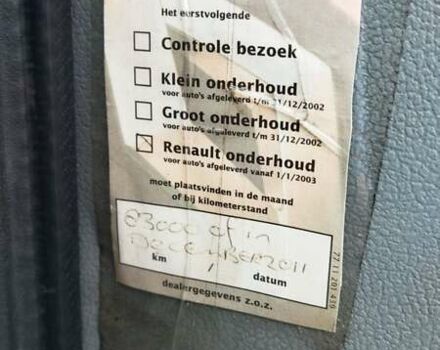 Het eerstvolgende
Controle bezoek
Klein onderhoud
voor auto's afgeleverd t/m 31/12/2002
Groot onderhoud
voor auto's afgeleverd t/m 31/12/2002
Renault onderhoud
voor auto's afgeleverd vanaf 1/1/2003
moet plaatsvinden in de maand
of bij kilometerstand
83000 of in
DECEMBER 2011
km / datum
dealergegevens z.o.z.
77 11 201 416